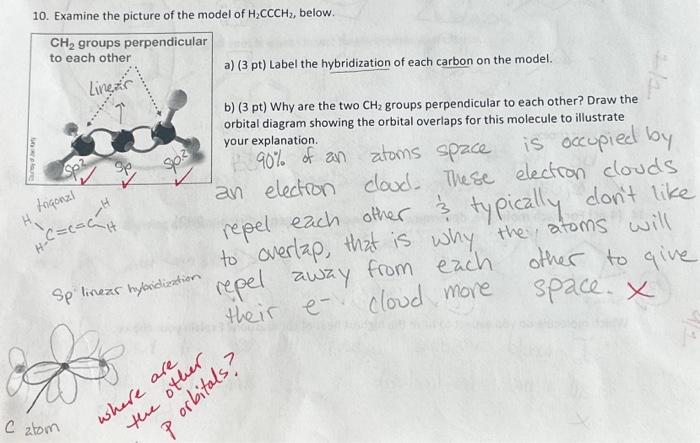 10. Examine the picture of the model of H₂CCCH₂, below.
CH₂ groups perpendicular
to each other
Linear
sp² sp sp²
a) (3 pt) Label the hybridization of each carbon on the model.
b) (3 pt) Why are the two CH₂ groups perpendicular to each other? Draw the
orbital diagram showing the orbital overlaps for this molecule to illustrate
your explanation.
90% of an atoms space is occupied by
an electron cloud. These electron clouds
repel each other & typically don't like
to overlap, that is why the atoms will
repel away from each other to give
their e- cloud more space. X
trigonal
H H
C=C=C
H H
Sp linear hybridization
where are
the other
p orbitals?
C atom